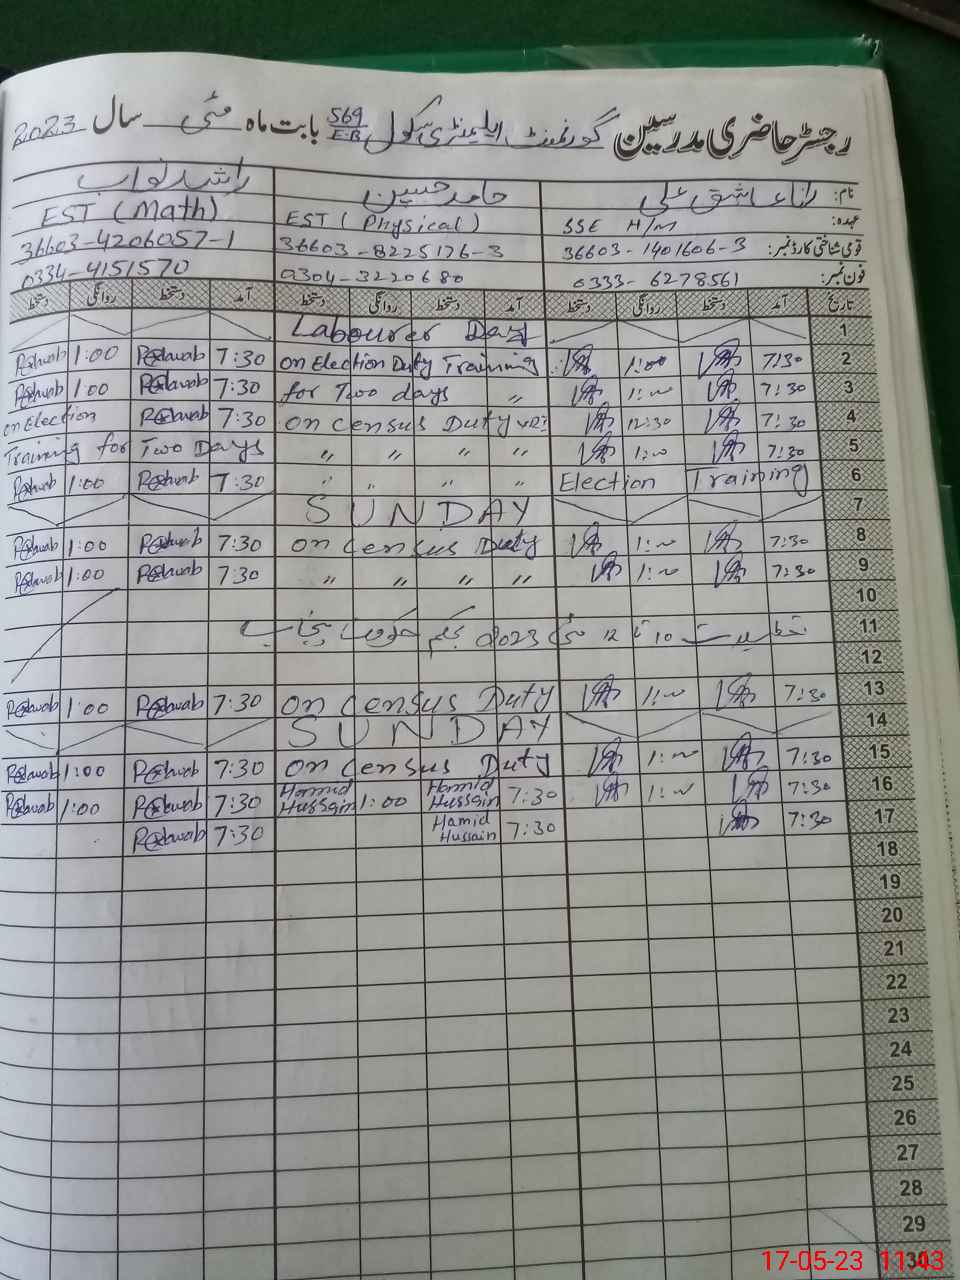 رجسٹر حاضری مدرسین گورنمنٹ ایلیمنٹری سکول 569 E.B بابت ماہ مئی سال 2023
نام: رانا عاشق علی حامد حسین راشد نواب
عہدہ: SSE H/M EST (Physical) EST (Math)
قومی شناختی کارڈ نمبر: 36603-1401606-3 36603-8225176-3 36603-4206057-1
فون نمبر: 0333-6278561 0304-3220680 0334-4151570
تاریخ آمد دستخط روانگی دستخط آمد دستخط روانگی دستخط آمد دستخط روانگی دستخط
1 Labourer Day
2 7:30 1:00 on Election Duty Training 7:30 1:00
3 7:30 1:00 for Two days " 7:30 1:00
4 7:30 12:30 on census Duty 7:30 on Election
5 7:30 1:00 " " " " Training for Two Days
6 Election Training " " " " 7:30 1:00
7 SUNDAY
8 7:30 1:00 on census Duty 7:30 1:00
9 7:30 1:00 " " " " 7:30 1:00
10
11 تعطیلات 10 تا 12 مئی 2023 بحکم حکومت پنجاب
12
13 7:30 1:00 on census Duty 7:30 1:00
14 SUNDAY
15 7:30 1:00 on census Duty 7:30 1:00
16 7:30 1:00 7:30 Hammid Hussain 1:00 Hammid Hussain 7:30 1:00
17 7:30 7:30 Hamid Hussain 7:30
18
19
20
21
22
23
24
25
26
27
28
29
30
17-05-23 11:43